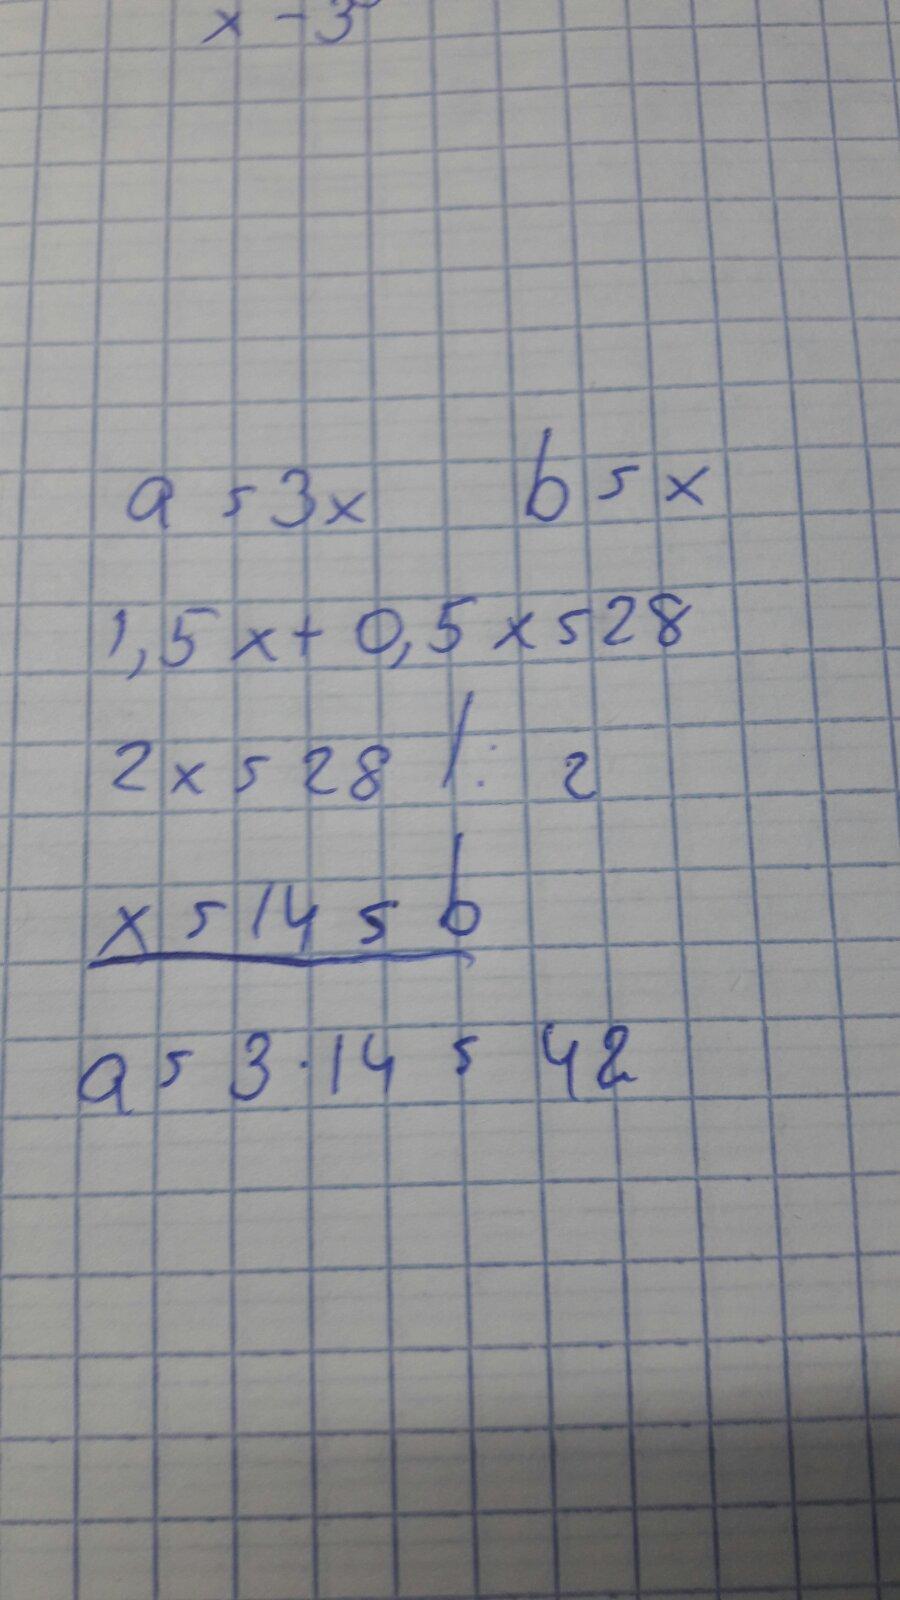 x - 3
a = 3x b = x
1,5x + 0,5x = 28
2x = 28 /: 2
x = 14 = b
a = 3·14 = 42